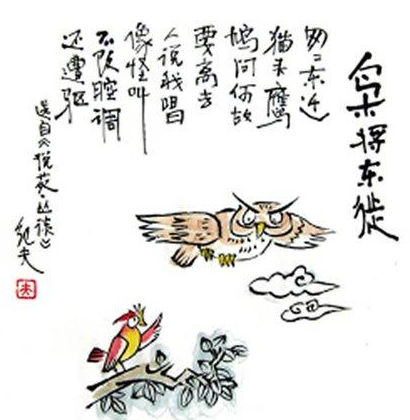 枭将东徙
匆匆东迁
猫头鹰
鸠问何故
要离去
人说我唱
像怪叫
不改腔调
还遭驱
选自《说苑·丛谈》
纪夫
夫